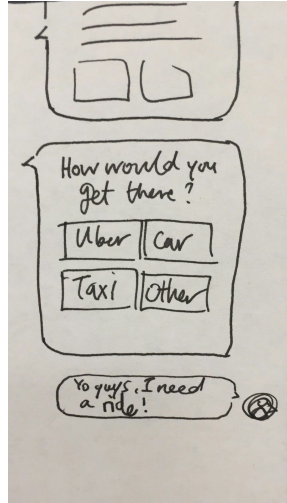 How would you
get there?
Uber Car
Taxi Other
Yo guys, I need
a ride!